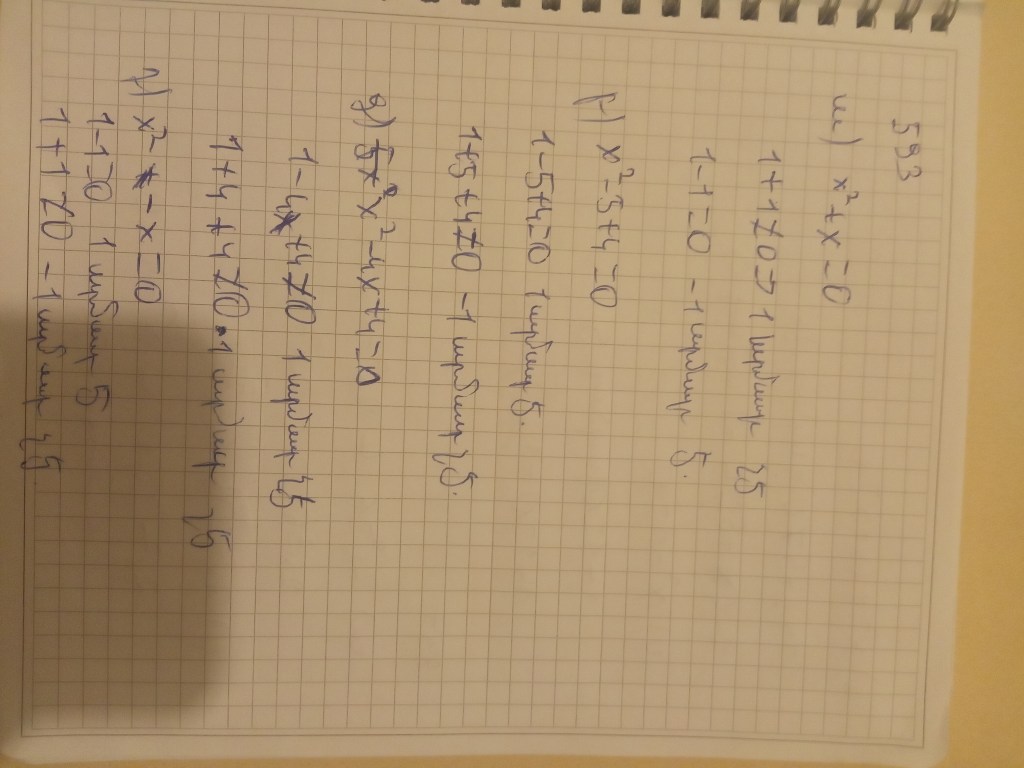 593
ա) x²+x=0
1+1≠0 => 1 արմատ չէ
1-1=0 -1 արմատ է.
բ) x²-5+4=0
1-5+4=0 1 արմատ է.
1+5+4≠0 -1 արմատ չէ.
գ) x²-4x+4=0
1-4+4≠0 1 արմատ չէ
1+4+4≠0 -1 արմատ չէ
դ) x²-x=0
1-1=0 1 արմատ է
1+1≠0 -1 արմատ չէ